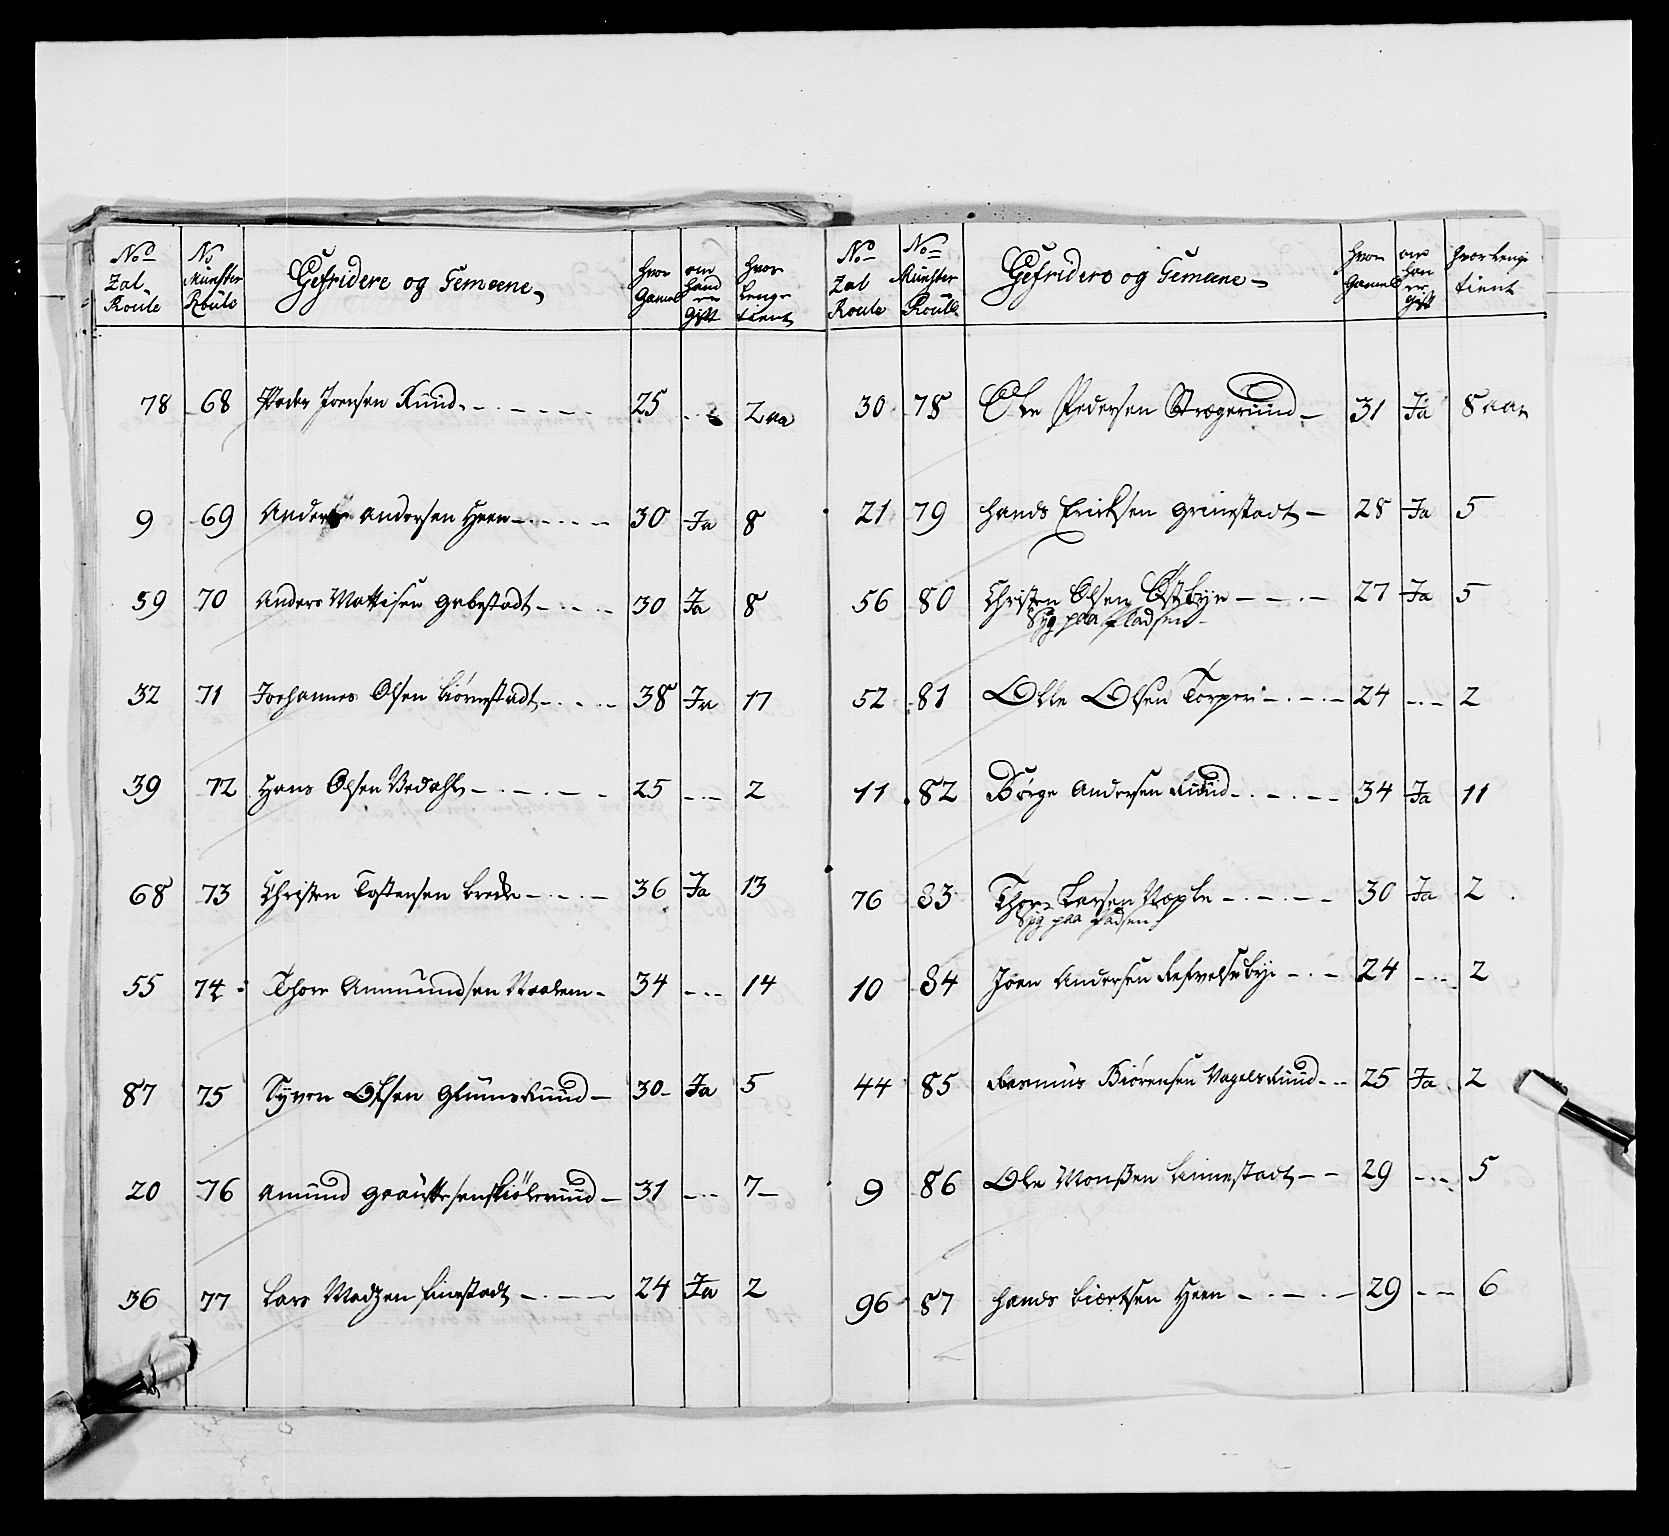 No Zal- Roule | No Munster Roule | Gefridere og Gemeene | hvor Gamel | om hand er gift | hvor lenge tient
78 68 Peder Joensen Ruud 25 - 2 aa
9 69 Anders Andersen Heen 30 Ja 8
59 70 Anders Mattisen Grbestadt 30 Ja 8
32 71 Joehannes Olsen biörnestadt 38 Ja 17
39 72 Hans Olsen Vedahl 25 - 2
68 73 Christen Tostensen brecke 36 Ja 13
55 74 Thore Ammundsen 34 - 14
87 75 Syver Olsen Glumsruud 30 Ja 5
20 76 Amund Graüttesen 31 - 7
36 77 Lars Madzen finestadt 24 Ja 2
No Zal Roule | No Munster Roule | Gefridere og Gemeene | hvor Gamel | om han er gift | hvor lenge tient
30 78 Ole Pedersen Krogeruud 31 Ja 8 aar
21 79 hands Ericksen grimstadt 28 Ja 5
56 80 Christen Olsen Östbye 27 Ja 5
Syg paa Pladsen
52 81 Olle Olsen Torper 24 - 2
11 82 Börge Andersen Ruud 34 Ja 11
76 83 Thore Larsen Næple 30 Ja 2
Syg paa Padsen
10 84 Joen Andersen 24 - 2
44 85 Rasmus Biörensen Vagelsruud 25 Ja 2
9 86 Ole Monsen Linnestadt 29 - 5
96 87 hands biertsen Heen 29 - 6